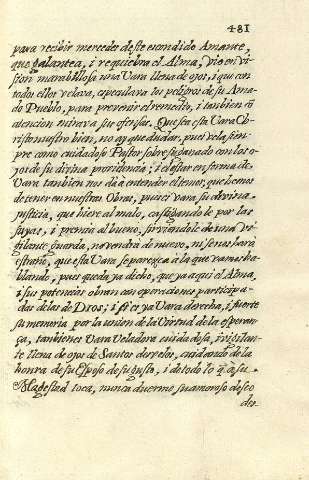 481
para recibir mercedes deste escondido Amante,
que galantea, i requiebra el Alma, vio en vi
sion marabillosa una Vara llena de ojos, i que con
todos ellos velava, i especulava los peligros de su Ama
do Pueblo, para prevenir el remedio, i tanbien cõ
atencion mirava sus ofensas. Que sea esta Vara Ch-
risto nuestro bien, no ay que dudar, pues vela sien
pre como cuidadoso Pastor sobre su ganado con los o-
jos de su divina providencia; i el estar en forma de
Vara tanbien nos da a entender el temor, que hemos
de tener en nuestras Obras, pues i vara su devina
justicia, que hiere al malo, castigandole por las
suyas, i premia al bueno, sirviendole de una vi
gilante guarda, no vendrá de nuevo, ni se nos hará
estraño, que esta Vara se paresca a la que vamos ha-
blando, pues queda ya dicho, que ya aqui el Alma,
i sus potencias obran con operaciones participa-
das de las de Dios; i si es ya Vara derecha, i fuerte
su memoria por la union de la Virtud de la esperan
ça, tanbien es Vara Veladora cuidadosa, i vigilan-
te llena de ojos de Santos desvelos, cuidando de la
honra de su Esposo de su gusto, i de todo lo q̃ a su
Magestad toca, nunca duerme su amoroso deseo
des